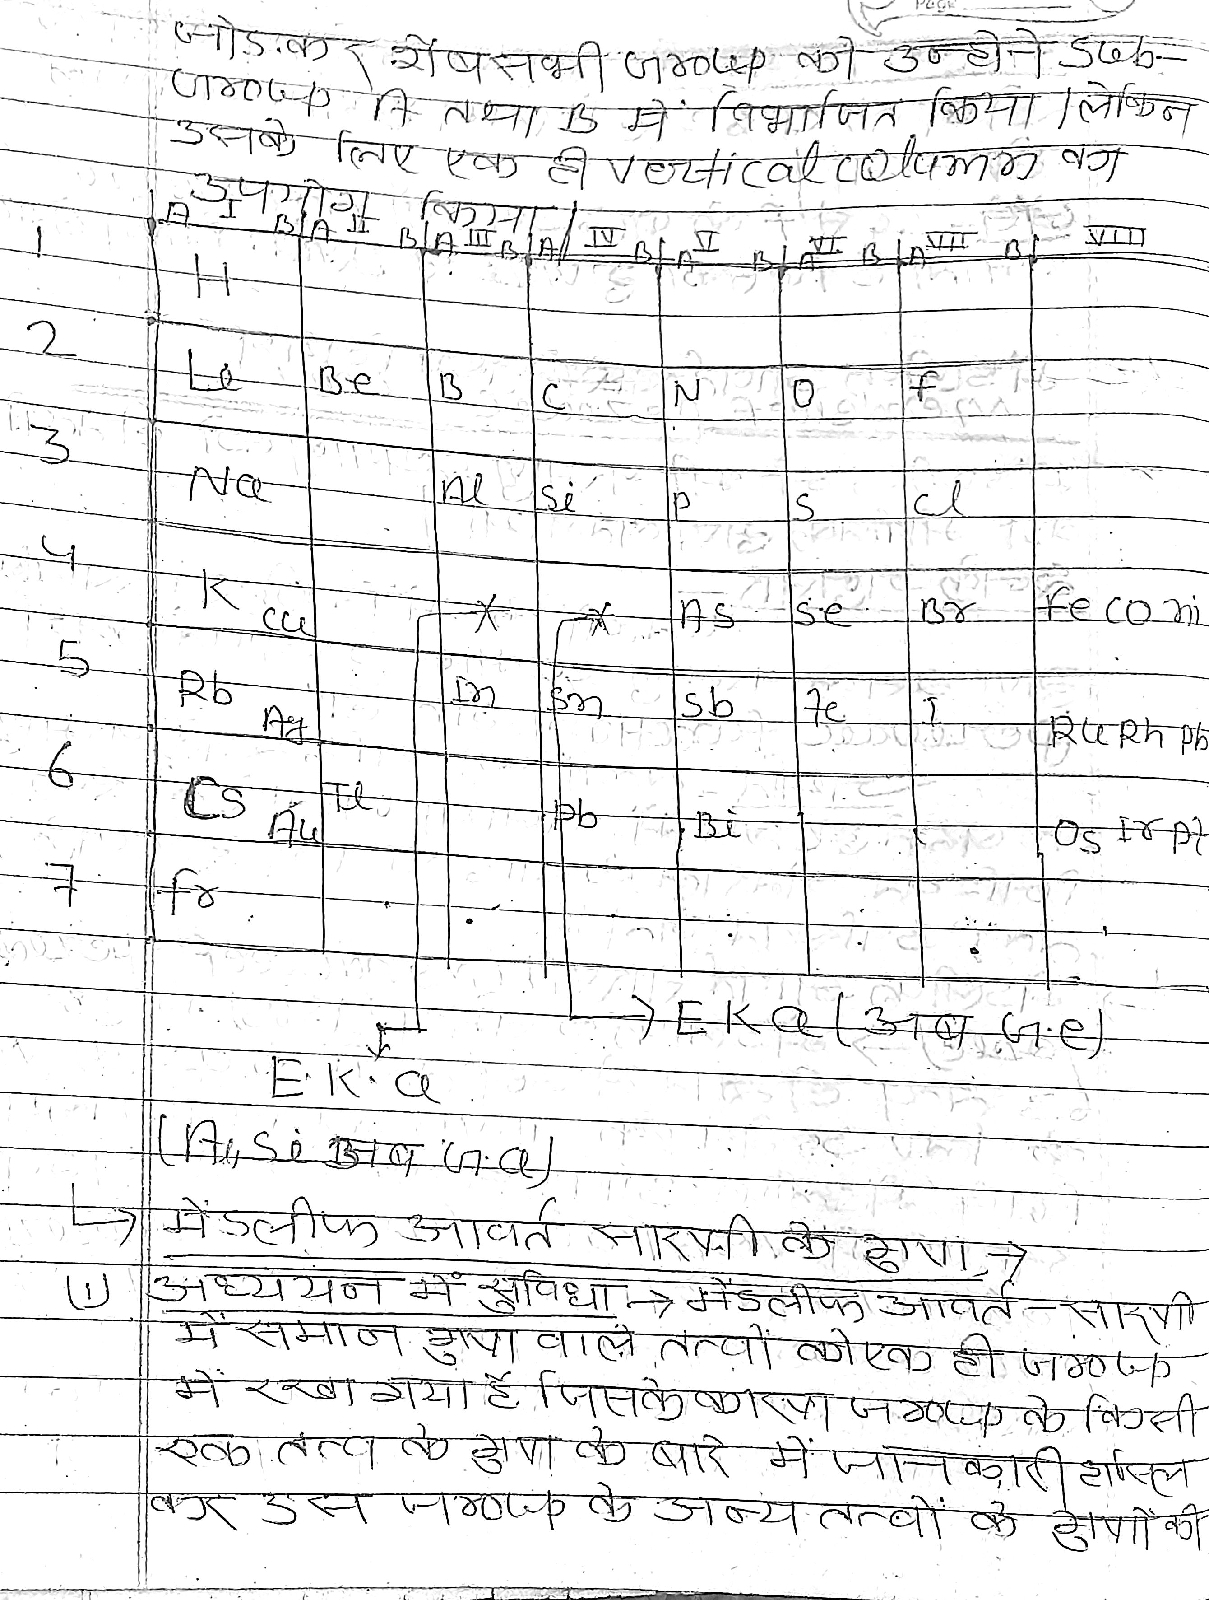 जोड़कर शेष सभी group को उन्होने sub-
group A तथा B में विभाजित किया । लेकिन
उसके लिए एक ही vertical column का
उपयोग किया ।
A I B A II B A III B A IV B A V B A VI B A VII B VIII
1 H
2 Le Be B C N O f
3 Na Al Si P S Cl
4 K Cu X X As Se Br fe CO ni
5 Rb Ag In Sn Sb Te I Ru Rh Pb
6 Cs Au Tl Pb Bi Os Ir Pt
7 fr
→ E K a (अब G.e)
E.K.a
(A, Si अब G.a)
↳ मेंडलीफ आवर्त सारणी के गुण →
(1) अध्ययन में सुविधा → मेंडलीफ आवर्त-सारणी
में समान गुण वाले तत्वों को एक ही group
में रखा गया है जिसके कारण group के किसी
एक तत्व के गुण के बारे में जानकारी हासिल
कर उस group के अन्य तत्वों के गुणों की